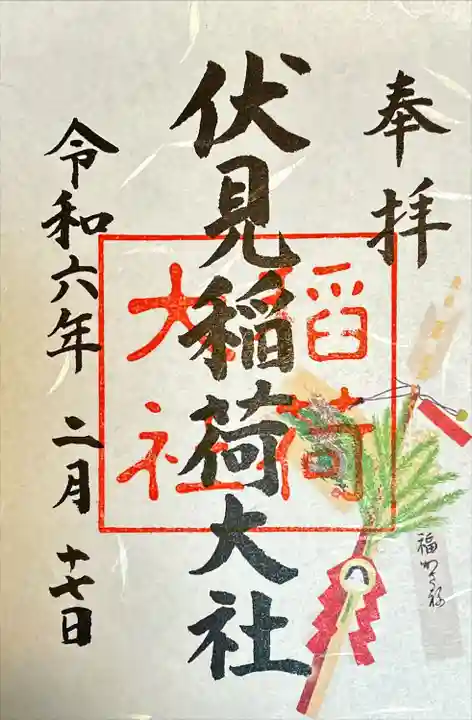 奉拝
伏見稲荷大社
令和六年 二月 十七日
稲荷
大社